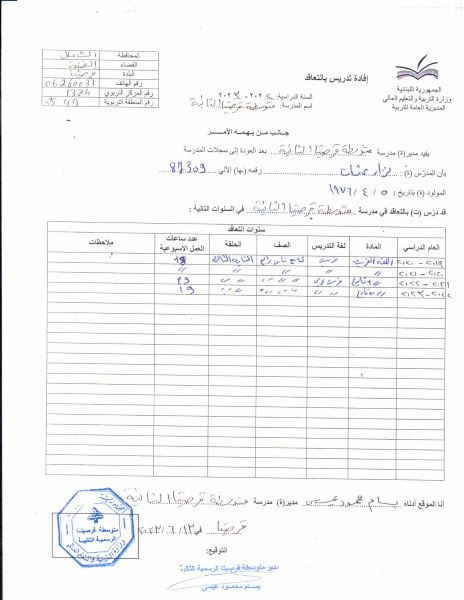 المحافظة الشمال
القضاء الضنية
البلدة قرصيتا
رقم الهاتف 06260031
رقم المركز التربوي 1384
رقم المنطقة التربوية 49
الجمهورية اللبنانية
وزارة التربية والتعليم العالي
المديرية العامة للتربية
إفادة تدريس بالتعاقد
السنة الدراسية: ٢٠٢٢ - ٢٠٢٣
اسم المدرسة: متوسطة قرصيتا الثانية
جانب من يهمه الأمر
يفيد مدير(ة) مدرسة متوسطة قرصيتا الثانية بعد العودة إلى سجلات المدرسة
بأن المدرّس (ة) : نزار عثمان رقمه (ها) الآلي 87309
المولود (ة) بتاريخ : ٥ / ٤ / ١٩٧٦
قد درّس (ت) بالتعاقد في مدرسة متوسطة قرصيتا الثانية في السنوات التالية :
سنوات التعاقد
العام الدراسي المادة لغة التدريس الصف الحلقة عدد ساعات العمل الاسبوعية ملاحظات
٢٠١٩ - ٢٠٢٠ اللغة 18
٢٠٢٠ - ٢٠٢١ " " " " "
٢٠٢١ - ٢٠٢٢ 19
٢٠٢٢ - ٢٠٢٣ 19
أنا الموقع أدناه بسام محمود عيسى مدير(ة) مدرسة متوسطة قرصيتا الثانية
قرصيتا في ١٣ / ٦ / ٢٠٢٣
التوقيع:
متوسطة قرصيتا
الرسمية الثانية
مدير متوسطة قرصيتا الرسمية الثانية
بسام محمود عيسى